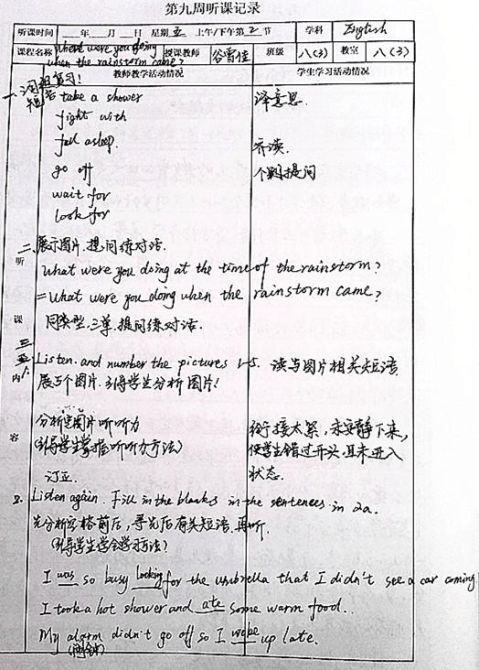 第九周听课记录
听课时间 ___年___月___日 星期 五 上午/下午第 2 节 学科 English
课程名称 Where were you doing when the rainstorm came? 授课教师 谷雪佳 班级 八(3) 教室 八(3)
教师教学活动情况 学生学习活动情况
一、词组复习!
短语 take a shower 译意思.
fight with
fall asleep. 齐读.
go off 个别提问
wait for
look for
二、展示图片,提问练对话.
What were you doing at the time of the rainstorm?
= What were you doing when the rainstorm came?
同类型,三单,提问练对话.
三 Listen and number the pictures 1-5. 读与图片相关短语
展五个图片,引导学生分析图片!
分析完图片听听力 衔接太紧,未安静下来,
(引导学生掌握听听力方法) 使学生错过开头,且未进入
订正. 状态.
2. Listen again. Fill in the blanks in the sentences in 2a.
先分析空格前后,寻先后有关短语,再听.
(引导学生学会学习方法?
I was so busy looking for the umbrella that I didn't see a car coming
I took a hot shower and ate some warm food.
My alarm didn't go off so I woke up late.
(闹钟)
听
课
内
容